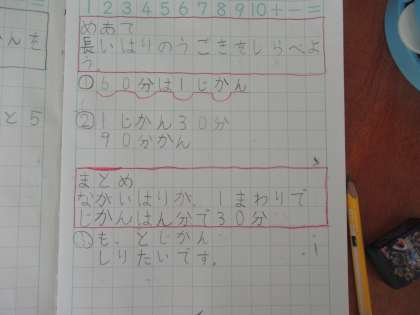 1 2 3 4 5 6 7 8 9 10 + − =
めあて
長いはりのうごきをしらべよ
う。
① 60分は1じかん
② 1じかん30分
90分かん
まとめ
ながいはりが、1まわりで
じかんはん分で30分
③ もっとじかん
しりたいです。
んを
と5